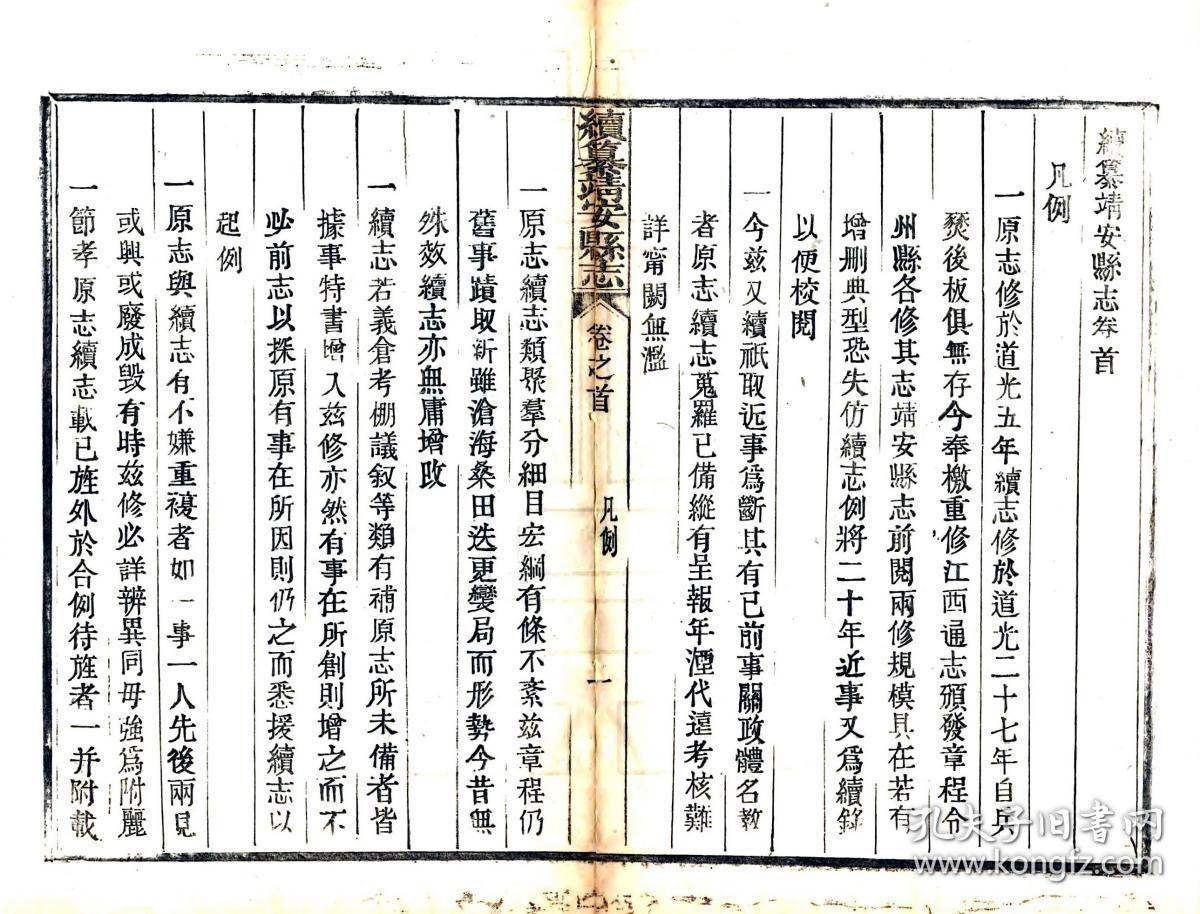 續纂靖安縣志卷首
凡例
一原志修於道光五年續志修於道光二十七年自兵
燹後板俱無存今奉檄重修江西通志頒發章程令
州縣各修其志靖安縣志前閱兩修規模具在若有
增刪典型恐失仿續志例將二十年近事又爲續錄
以便校閱
一今兹又續祇取近事爲斷其有已前事關政體名敎
者原志續志蒐羅已備縱有呈報年湮代遠考核難
詳甯闕無濫
續纂靖安縣志
卷之首
凡例
一
一原志續志類聚羣分細目宏綱有條不紊兹章程仍
舊事蹟取新雖滄海桑田迭更變局而形勢今昔無
殊故續志亦無庸增改
一續志若義倉考棚議叙等類有補原志所未備者皆
據事特書增入兹修亦然有事在所創則增之而不
必前志以採原有事在所因則仍之而悉援續志以
起例
一原志與續志有不嫌重複者如一事一人先後兩見
或興或廢成毀有時兹修必詳辨異同毋強爲附麗
一節孝原志續志載已旌外於合例待旌者一并附載
孔夫子旧书网
www.kongfz.com